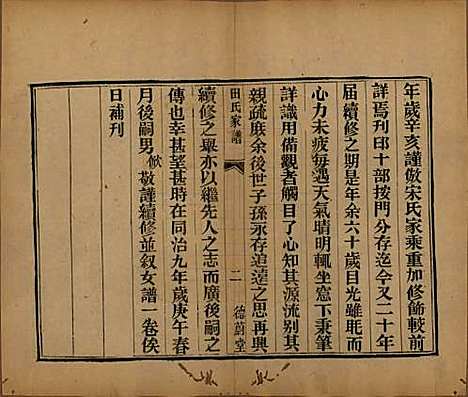 年歲辛亥謹倣宋氏家乘重加修飾較前
詳焉刊印十部按門分存迄今又二十年
届續修之期是年余六十歲目光雖眊而
心力未疲每遇天氣晴明輒坐窓下秉筆
詳識用備觀者觸目了心知其源流别其
親疏庶余後世子孫永存追遠之思再興
田氏家譜
二
德蔚堂
續修之舉亦以繼先人之志而廣後嗣之
傳也幸甚望甚時在同治九年歲庚午春
月後嗣男敬謹續修並叙女譜一卷俟
日補刊